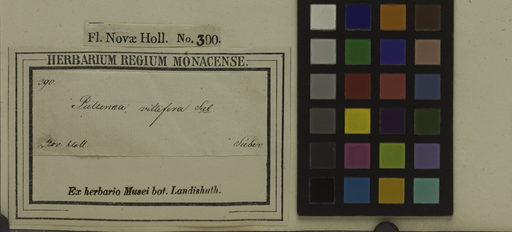 Fl. Novæ Holl. No. 390.
HERBARIUM REGIUM MONACENSE.
390.
Pultenaea villifera Sieb.
Nov. Holl. Sieber
Ex herbario Musei bot. Landishuth.